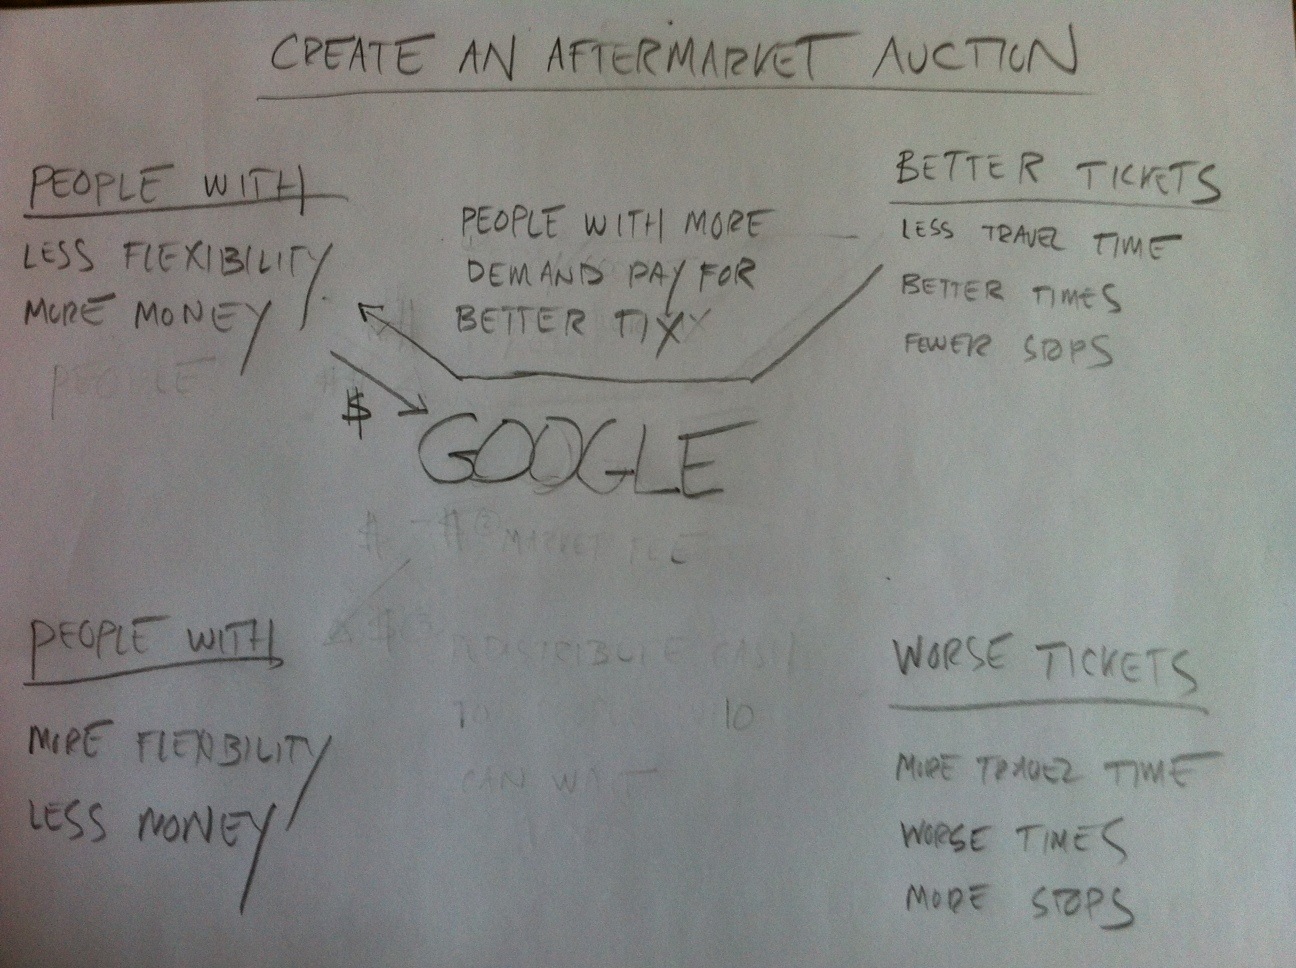 CREATE AN AFTERMARKET AUCTION
PEOPLE WITH
LESS FLEXIBILITY
MORE MONEY
PEOPLE
PEOPLE WITH MORE
DEMAND PAY FOR
BETTER TIX
BETTER TICKETS
LESS TRAVEL TIME
BETTER TIMES
FEWER STOPS
$
GOOGLE
PEOPLE WITH
MORE FLEXIBILITY
LESS MONEY
CAN WAIT
WORSE TICKETS
MORE TRAVEL TIME
WORSE TIMES
MORE STOPS